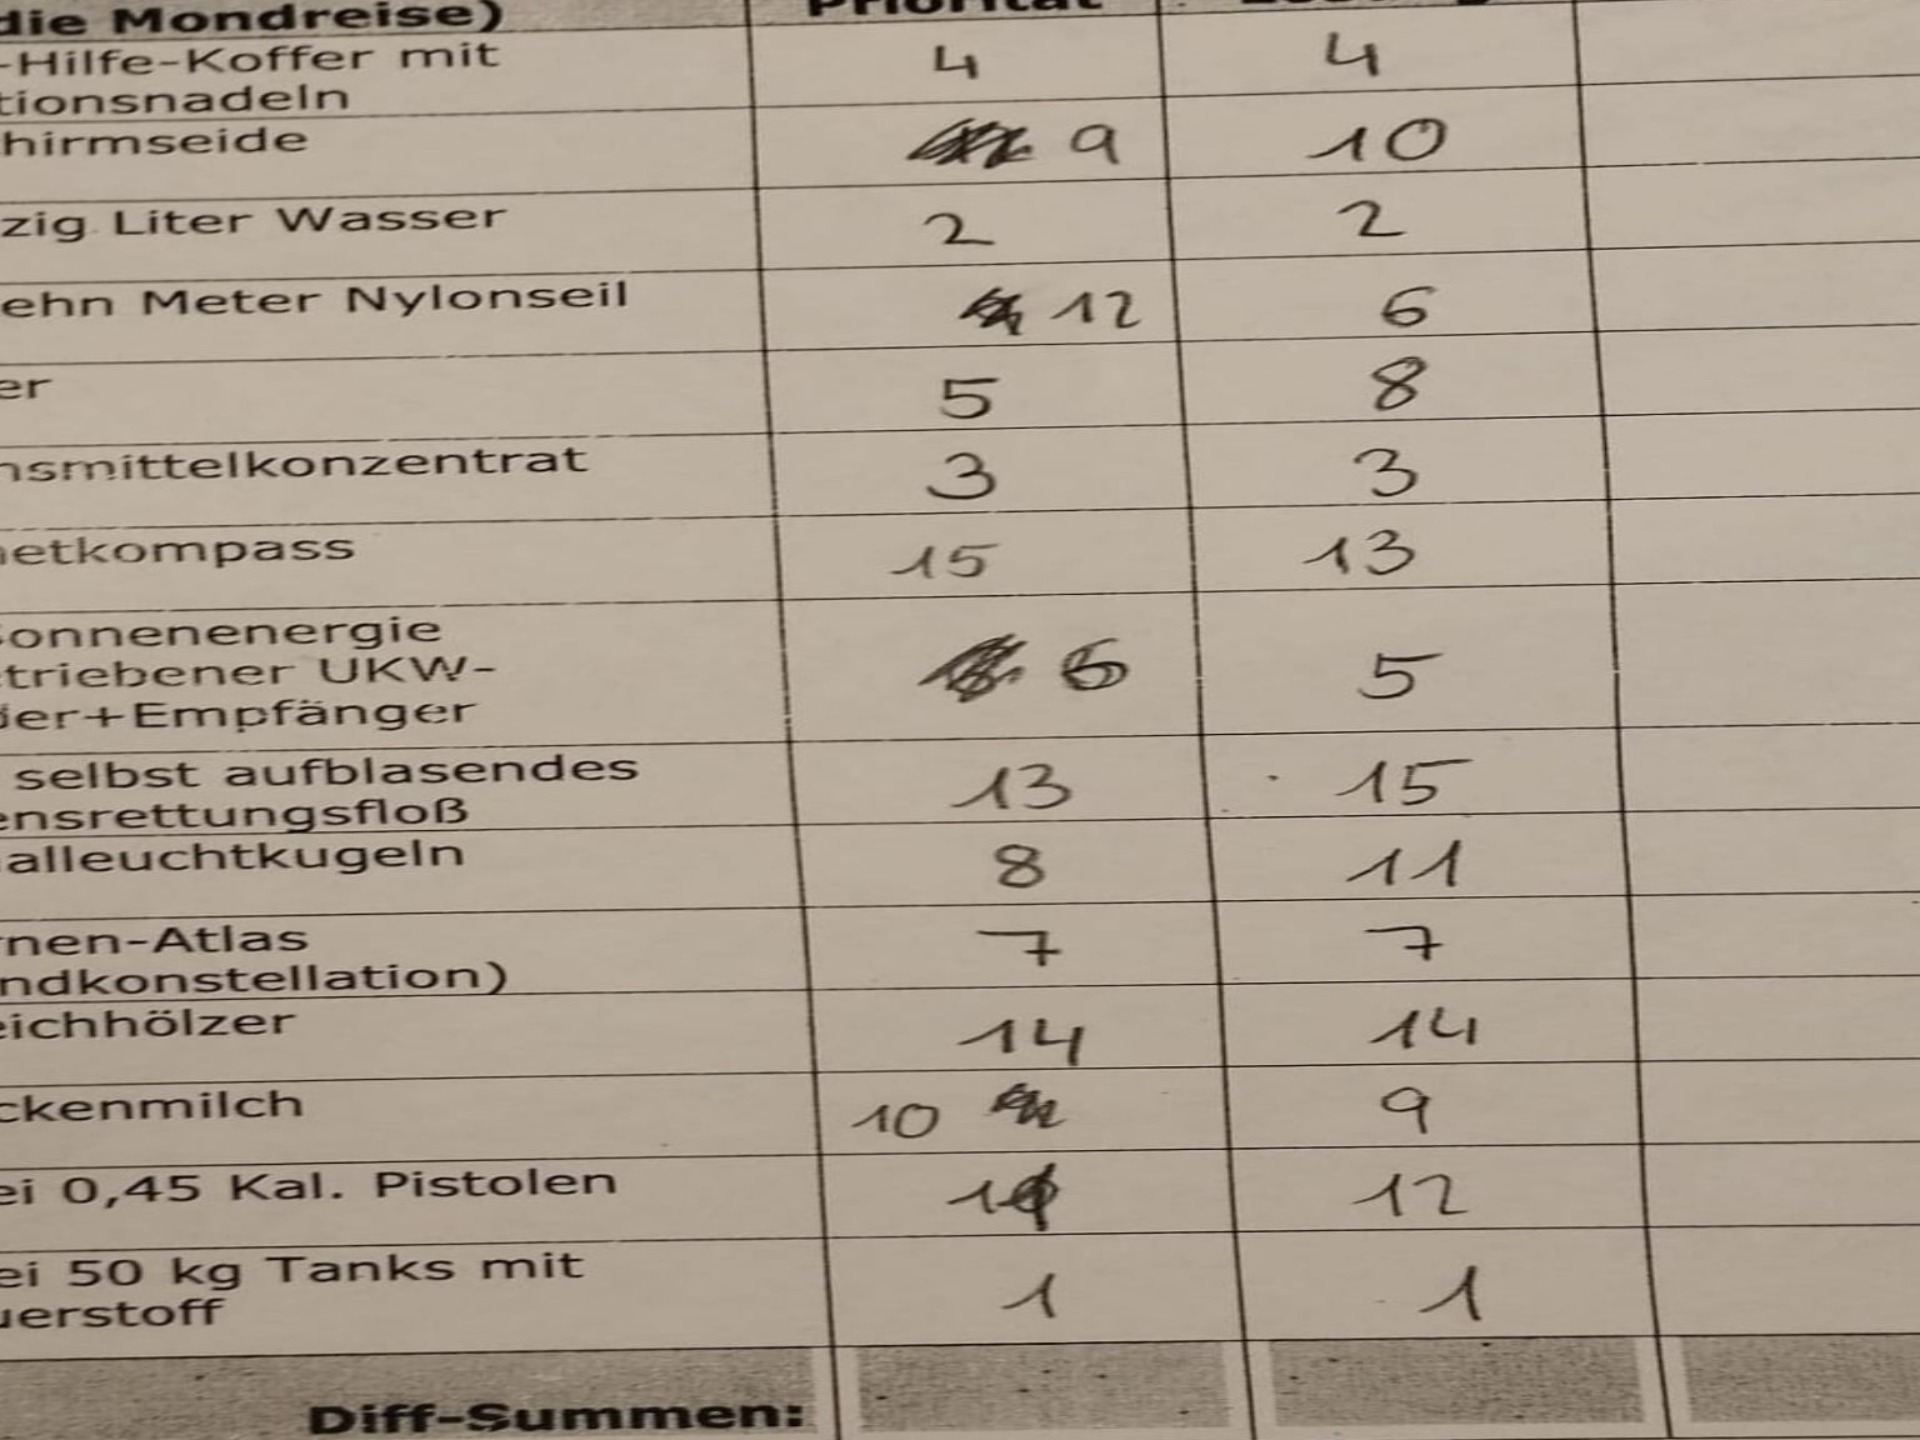 die Mondreise) Priorität
-Hilfe-Koffer mit 4 4
tionsnadeln
hirmseide 9 10
zig Liter Wasser 2 2
ehn Meter Nylonseil 12 6
er 5 8
nsmittelkonzentrat 3 3
netkompass 15 13
Sonnenenergie
etriebener UKW- 6 5
der+Empfänger
selbst aufblasendes 13 15
ensrettungsfloß
alleuchtkugeln 8 11
rnen-Atlas 7 7
ndkonstellation)
eichhölzer 14 14
ckenmilch 10 9
ei 0,45 Kal. Pistolen 12
ei 50 kg Tanks mit 1 1
uerstoff
Diff-Summen: